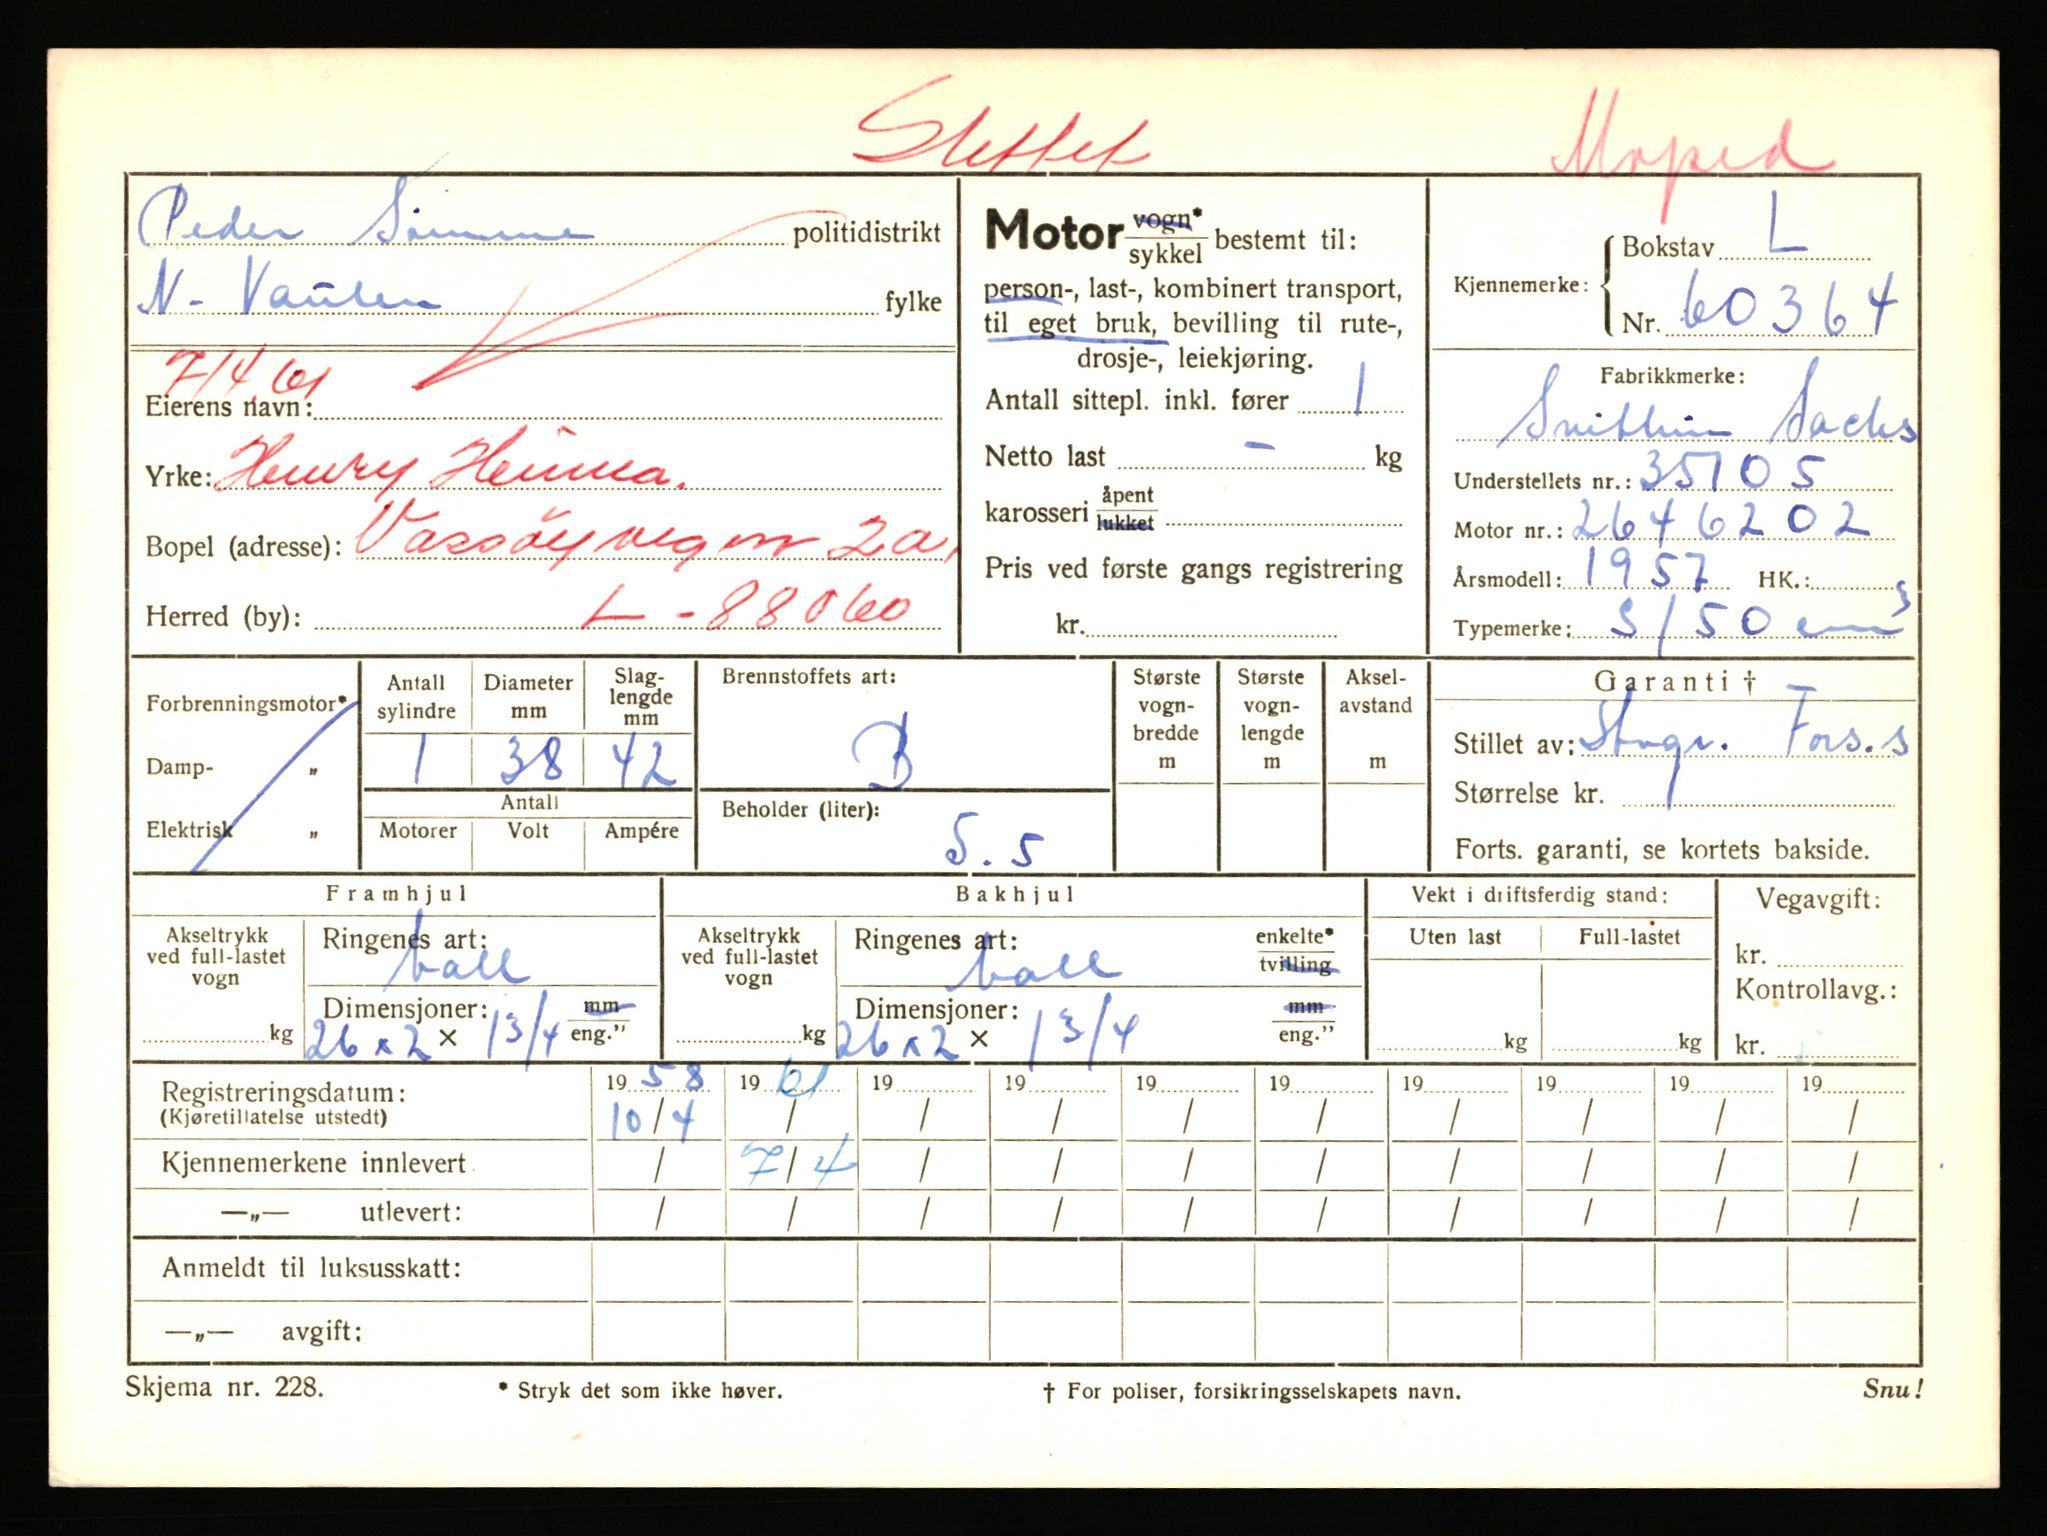 Slettet
Moped
Peder Sömme politidistrikt
N- Vaulen fylke
7/4.61
Eierens navn:
Yrke: Henry Heima.
Bopel (adresse): Vassöyvegen 2a,
Herred (by): L - 88060
Motor vogn* / sykkel bestemt til:
person-, last-, kombinert transport,
til eget bruk, bevilling til rute-,
drosje-, leiekjøring.
Antall sittepl. inkl. fører 1
Netto last - kg
karosseri åpent / lukket
Pris ved første gangs registrering
kr.
Kjennemerke: Bokstav L
Nr. 60364
Fabrikkmerke:
Sachs
Understellets nr.: 35105
Motor nr.: 2646202
Årsmodell: 1957 HK.:
Typemerke: S/50 cm³
Forbrenningsmotor*
Damp- „
Elektrisk „
Antall sylindre Diameter mm Slag-lengde mm
1 38 42
Antall
Motorer Volt Ampére
Brennstoffets art:
B
Beholder (liter):
5.5
Største vogn-bredde m
Største vogn-lengde m
Aksel-avstand m
Garanti †
Stillet av: Stvgr. Fors.s
Størrelse kr.
Forts. garanti, se kortets bakside.
Framhjul
Akseltrykk ved full-lastet vogn
kg
Ringenes art:
ball
Dimensjoner: mm
26 x 2 × 1 3/4 eng."
Bakhjul
Akseltrykk ved full-lastet vogn
kg
Ringenes art: enkelte* / tvilling
ball
Dimensjoner: mm
26 x 2 × 1 3/4 eng."
Vekt i driftsferdig stand:
Uten last Full-lastet
kg kg
Vegavgift:
kr.
Kontrollavg.:
kr.
Registreringsdatum: 19 58 19 61 19 19 19 19 19 19 19 19
(Kjøretillatelse utstedt) 10/4 / / / / / / / / /
Kjennemerkene innlevert / 7/4 / / / / / / / /
—„— utlevert: / / / / / / / / / /
Anmeldt til luksusskatt:
—„— avgift:
Skjema nr. 228.
* Stryk det som ikke høver.
† For poliser, forsikringsselskapets navn.
Snu!